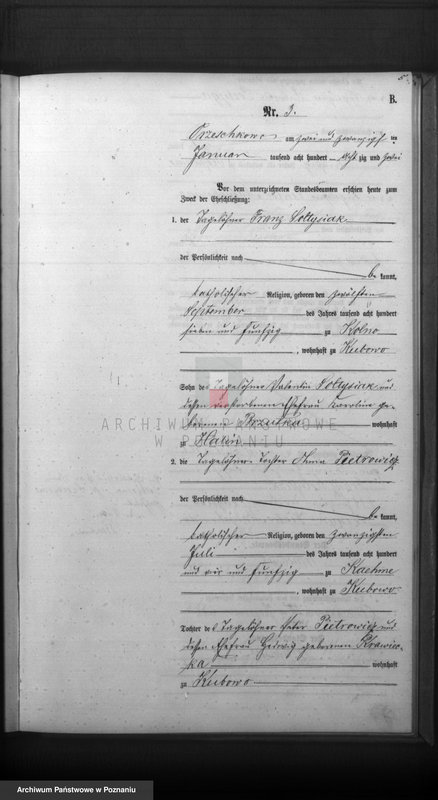 B.
Nr. 3.
Orzeschkowo am zwei und zwanzigsten
Januar tausend acht hundert acht zig und zwei
Vor dem unterzeichneten Standesbeamten erschien heute zum
Zweck der Eheschließung:
1. der Tagelöhner Franz Soltysiak
der Persönlichkeit nach
be kannt,
katholischer Religion, geboren den zwölften
September des Jahres tausend acht hundert
sieben und fünfzig zu Kolno
, wohnhaft zu Kubowo
Sohn des Tagelöhner Valentin Soltysiak und
dessen verstorbenen Ehefrau Karoline ge-
borenen wohnhaft
zu
ARCHIWUM PAŃSTWOWE
W POZNANIU
2. die Tagelöhner-Tochter Anna Pietrowicz
der Persönlichkeit nach
be kannt,
katholischer Religion, geboren den zwanzigsten
Juli des Jahres tausend acht hundert
und vier und fünfzig zu Kaehme
, wohnhaft zu Kubowo
Tochter des Tagelöhner Peter Pietrowicz und
dessen Ehefrau Hedwig geborenen
ka wohnhaft
zu Kubowo
Archiwum Państwowe w Poznaniu